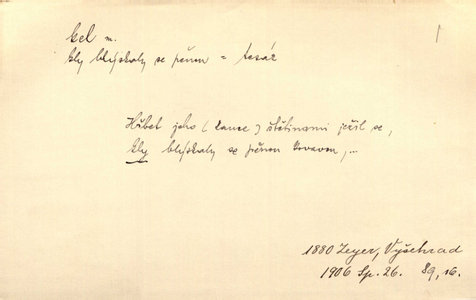 kel m.
kly blýskaly se pěnou =
Hřbet jeho (kance) štětinami ježil se,
kly blýskaly se pěnou krvavou, ...
1880 Zeyer, Vyšehrad
1906 Sp. 26. 89, 16.